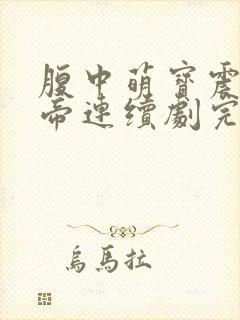 腹中萌寶震
帝連續劇完
烏馬拉